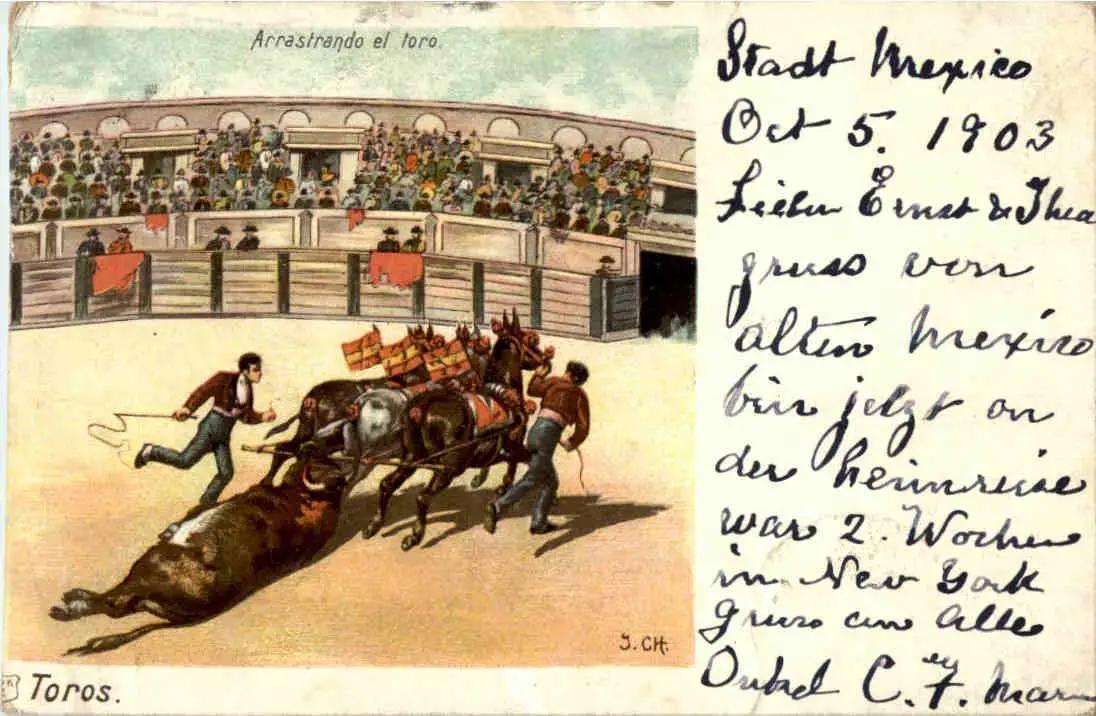 Arrastrando el toro.
J. CH.
Toros.
Stadt Mexico
Oct 5. 1903
Lieber Ernst & Thea
gruss von
alten Mexico
bin jetzt on
der heimreise
war 2. Wochen
in New York
gruss an Alle
Onkel C. F.